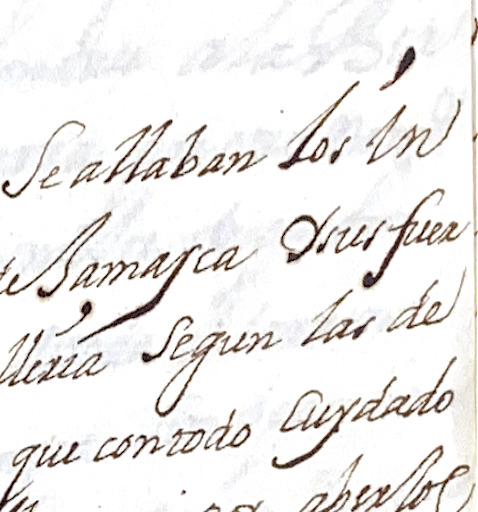 Se allaban los in
de Bamarca Osus fuer
lleria Segun las de
que con todo Cuydado
aberlos